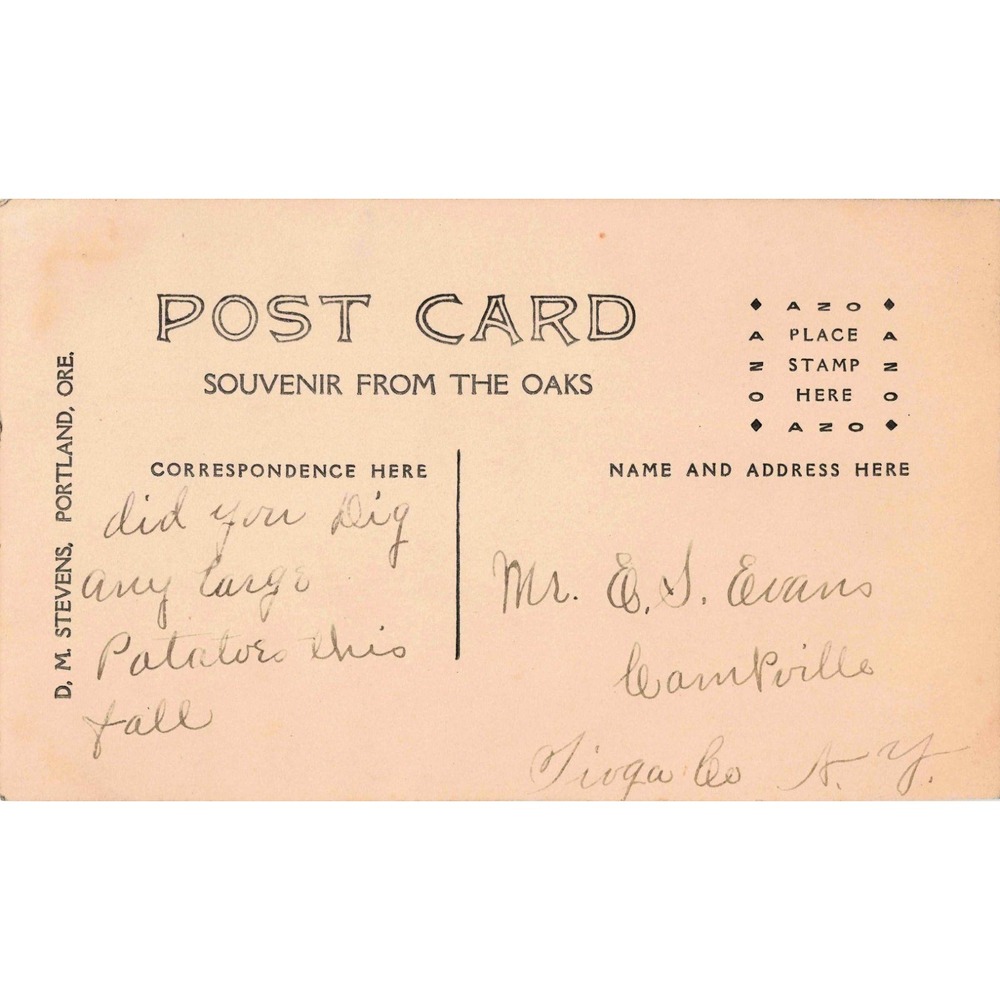 POST CARD
SOUVENIR FROM THE OAKS
D. M. STEVENS, PORTLAND, ORE.
AZO
PLACE
STAMP
HERE
AZO
AZO
AZO
CORRESPONDENCE HERE
did you Dig
any large
Potatoes this
fall
NAME AND ADDRESS HERE
Mr. E. S. Evans
Tioga Co N. Y.